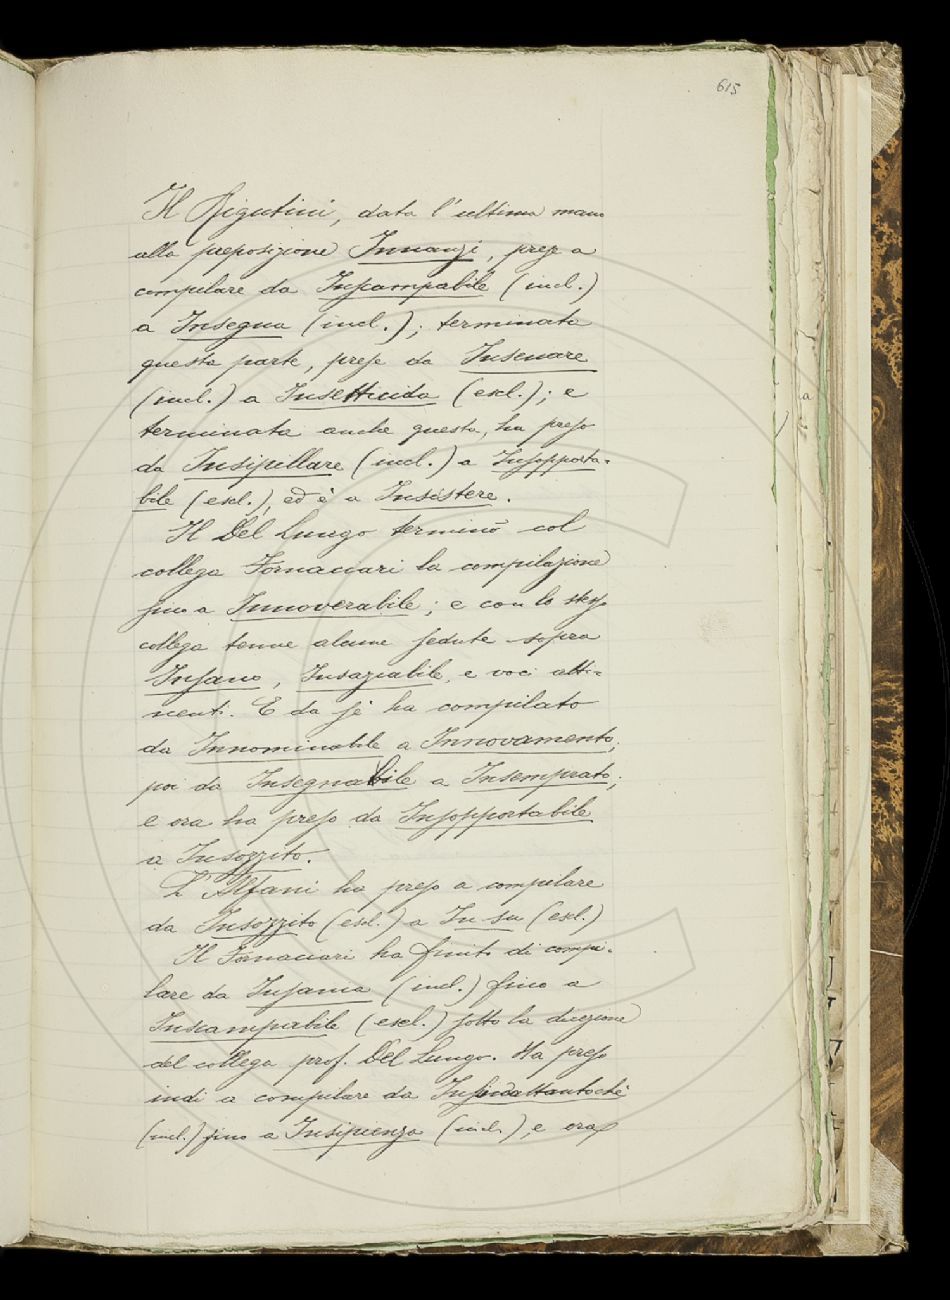 615
Il Rigutini, data l'ultima mano
alla preposizione Innanzi, prese a
compilare da Inscampabile (incl.)
a Insegna (incl.); terminata
questa parte, prese da Insenare
(incl.) a Insetticida (escl.); e
terminata anche questa, ha preso
da Insipillare (incl.) a Insopporta-
bile (escl.), ed è a Insistere.
Il Del Lungo terminò col
collega Fornaciari la compilazione
fino a Innoverabile; e con lo stesso
collega tenne alcune sedute sopra
Insano, Insaziabile, e voci atti-
nenti. E da sè ha compilato
da Innominabile a Innovamento;
poi da Insegnabile a Insemprato;
e ora ha preso da Insopportabile
a Insozzito.
L'Alfani ha preso a compilare
da Insozzito (escl.) a In su (escl.)
Il Fornaciari ha finito di compi-
lare da Insania (incl.) fino a
Inscampabile (escl.) sotto la direzione
del collega prof. Del Lungo. Ha preso
indi a compilare da Insindattantochè
(incl.) fino a Insipienza (incl.), e ora